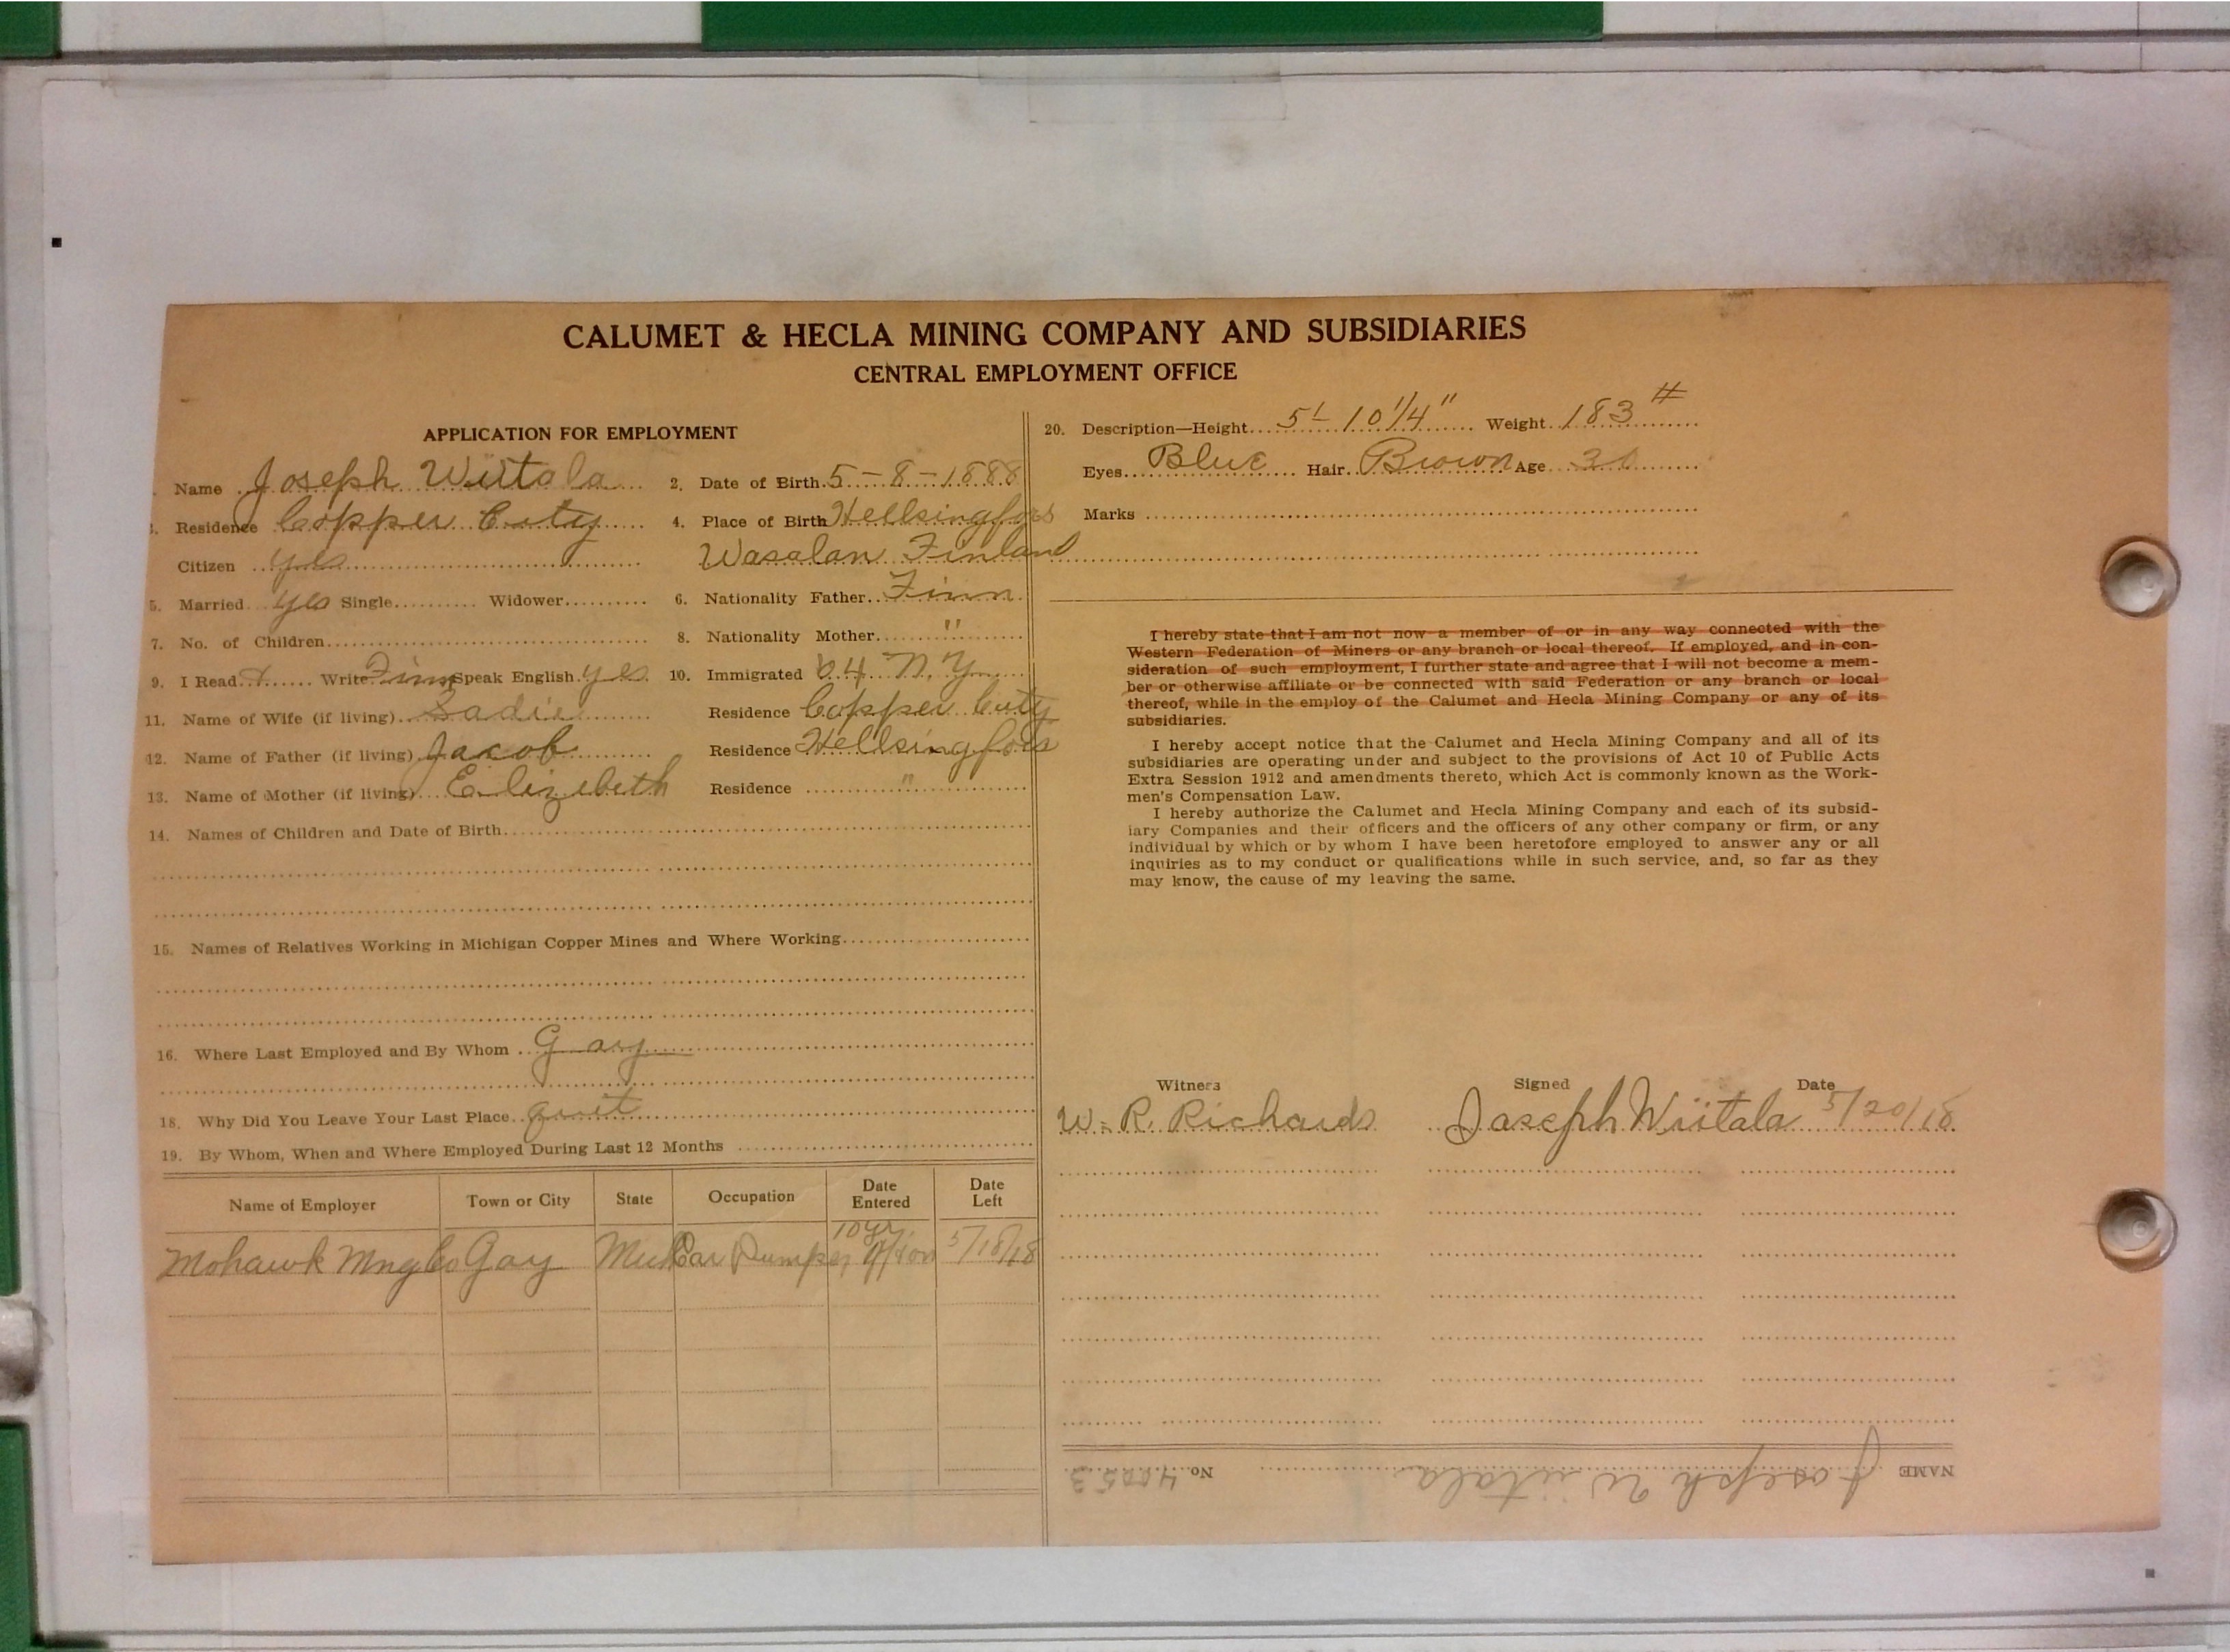 CALUMET & HECLA MINING COMPANY AND SUBSIDIARIES
CENTRAL EMPLOYMENT OFFICE
APPLICATION FOR EMPLOYMENT
Name Joseph Wiitala 2. Date of Birth 5-8-1888
Residence Copper City 4. Place of Birth Hellsingfors
Citizen yes Wasalan Finland
5. Married yes Single Widower 6. Nationality Father Finn
7. No. of Children 8. Nationality Mother "
9. I Read + Write Finn Speak English yes 10. Immigrated 04 N.Y.
11. Name of Wife (if living) Sadie Residence Copper City
12. Name of Father (if living) Jacob Residence Hellsingfors
13. Name of Mother (if living) Elizibeth Residence "
14. Names of Children and Date of Birth
15. Names of Relatives Working in Michigan Copper Mines and Where Working
16. Where Last Employed and By Whom Gay
18. Why Did You Leave Your Last Place quit
19. By Whom, When and Where Employed During Last 12 Months
Name of Employer Town or City State Occupation Date Entered Date Left
10 yr
Mohawk Mng Co Gay Mich Car Dumper 5/18/18
20. Description—Height 5' 10 1/4" Weight 183 #
Eyes Blue Hair Brown Age 30
Marks
I hereby state that I am not now a member of or in any way connected with the
Western Federation of Miners or any branch or local thereof. If employed, and in con-
sideration of such employment, I further state and agree that I will not become a mem-
ber or otherwise affiliate or be connected with said Federation or any branch or local
thereof, while in the employ of the Calumet and Hecla Mining Company or any of its
subsidiaries.
I hereby accept notice that the Calumet and Hecla Mining Company and all of its
subsidiaries are operating under and subject to the provisions of Act 10 of Public Acts
Extra Session 1912 and amendments thereto, which Act is commonly known as the Work-
men's Compensation Law.
I hereby authorize the Calumet and Hecla Mining Company and each of its subsid-
iary Companies and their officers and the officers of any other company or firm, or any
individual by which or by whom I have been heretofore employed to answer any or all
inquiries as to my conduct or qualifications while in such service, and, so far as they
may know, the cause of my leaving the same.
Witness Signed Date
W. R. Richards Joseph Wiitala 5/20/18
NAME Joseph Wiitala No. 40053